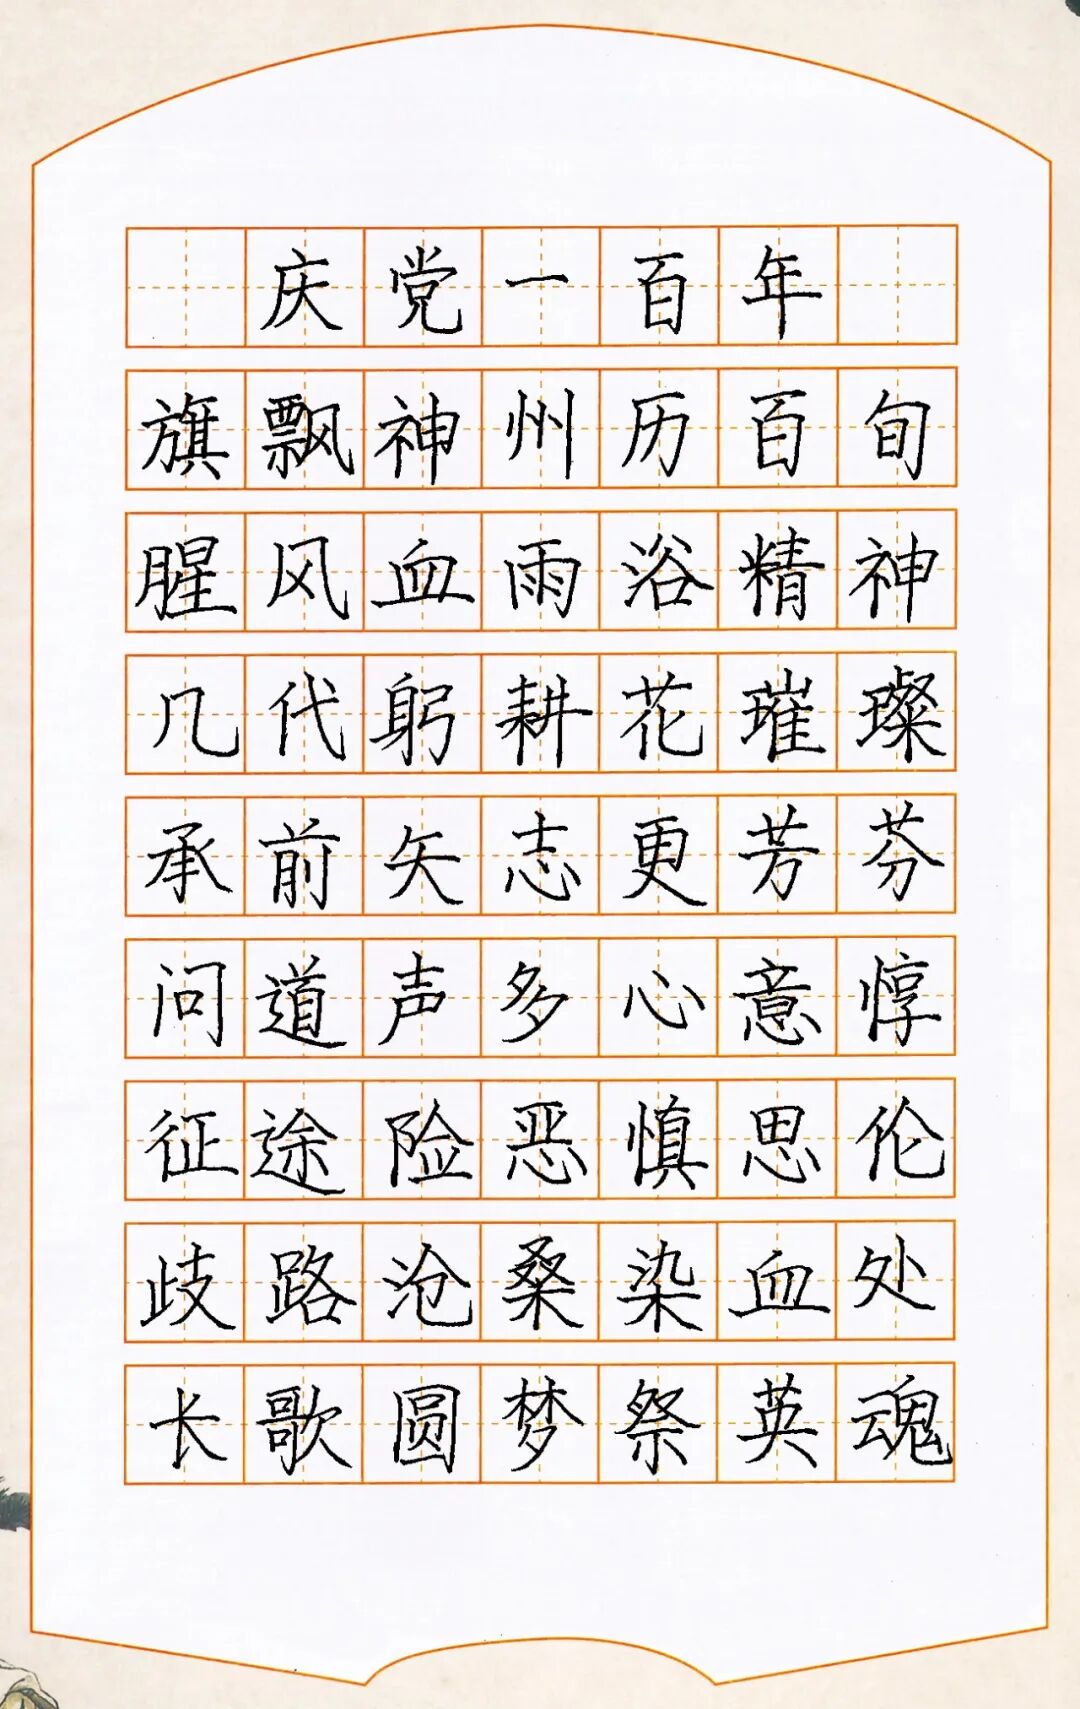 庆党一百年
旗飘神州历百旬
腥风血雨浴精神
几代躬耕花璀璨
承前矢志更芳芬
问道声多心意惇
征途险恶慎思伦
歧路沧桑染血处
长歌圆梦祭英魂